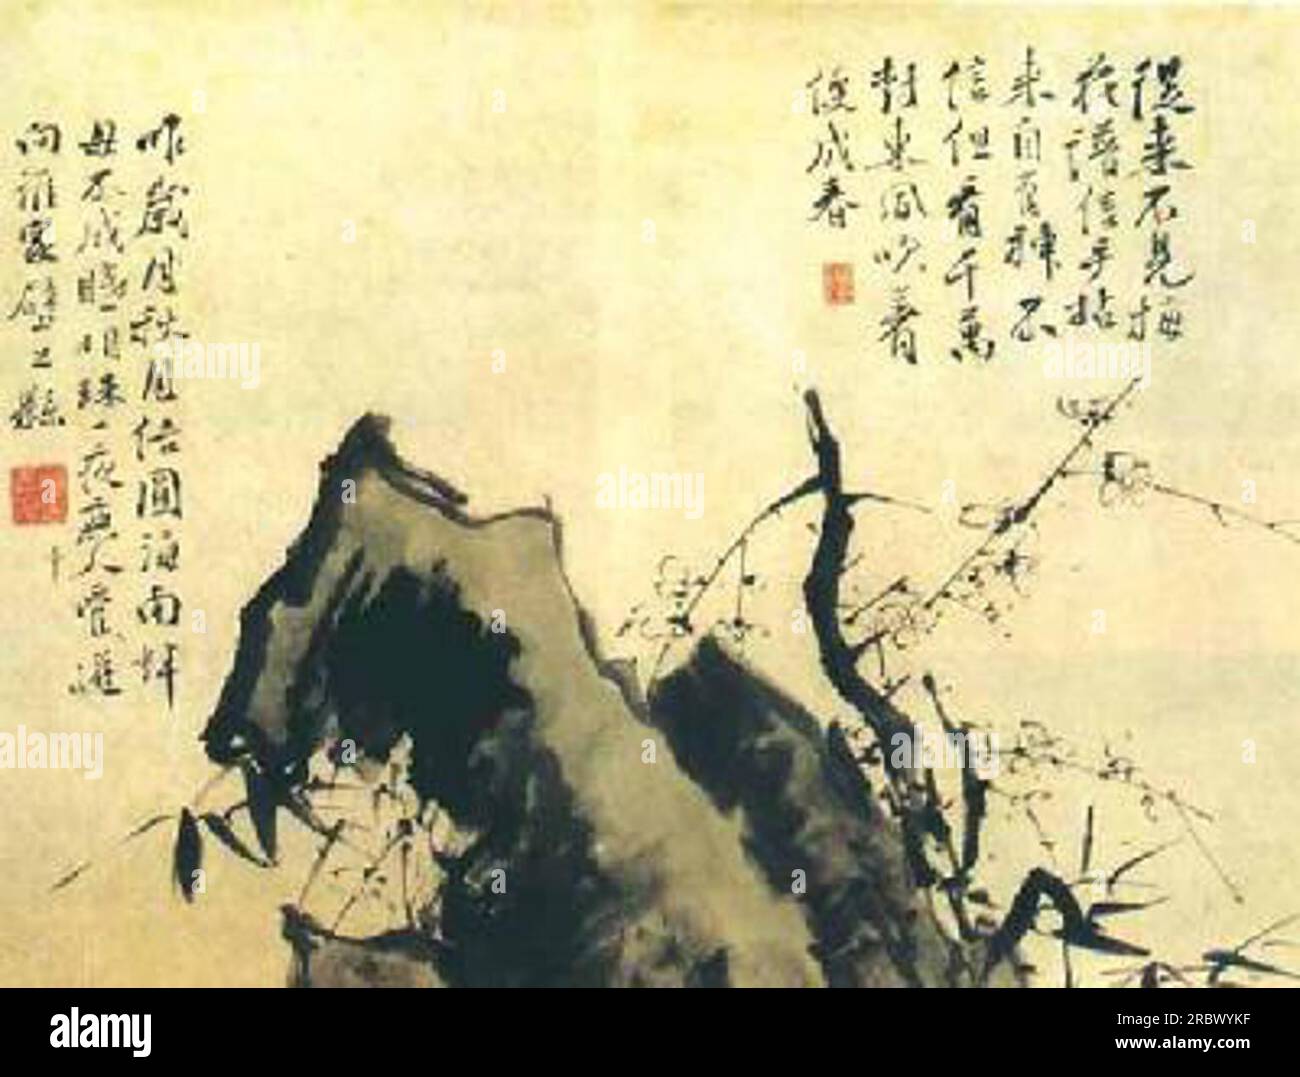 從来不見梅
花譜信手拈
来自有神不
信但看千萬
樹東風吹著
便成春
昨歲月秋月倍圓海南蚌
母不成眠明珠一夜無人管迸
向誰家壁上懸
alamy
alamy
alamy
alamy
alamy
alamy
Image ID: 2RBWYKF
www.alamy.com